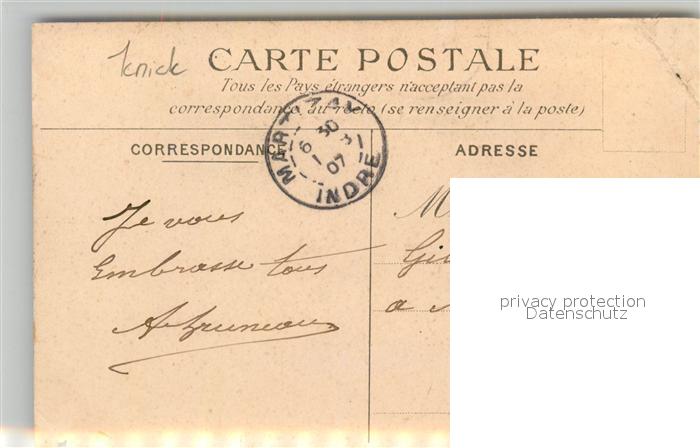 knick
CARTE POSTALE
Tous les Pays étrangers n'acceptant pas la
correspondance au recto (se renseigner à la poste)
MARTIZAY
6 30
1 3
07
INDRE
CORRESPONDANCE
ADRESSE
Je vous
Embrasse tous
A Bruneau
M
Gi
a
privacy protection
Datenschutz